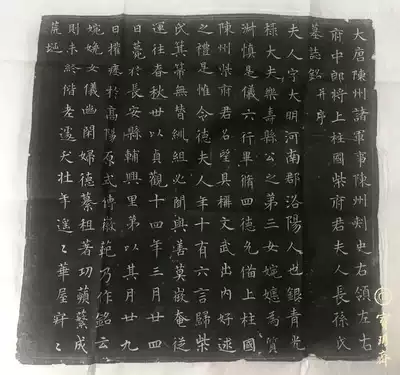 大唐陳州諸軍事陳州刺史右領左右
府中郎將上柱國柴府君夫人長孫氏
墓誌銘并序
夫人字大明河南郡洛陽人也銀青光
祿大夫樂壽縣公之第三女婉嫕為質
淑慎是儀六行畢脩四德允備上柱國
陳州柴府君名望具稱文武出內好逑
之禮是惟令德夫人年十有六言歸柴
氏箕箒無替紃組必閑與善莫徵奄從
運往春秋卅以貞觀十四年三月廿四
日薨於長安縣輔興里第以其月廿九
日權瘞於高陽原式傳徽範乃作銘云
婉娩女儀幽閑婦德纂祖著功蘋蘩成
則未終偕老遽夭壯年遙〻華屋窅〻
荒埏